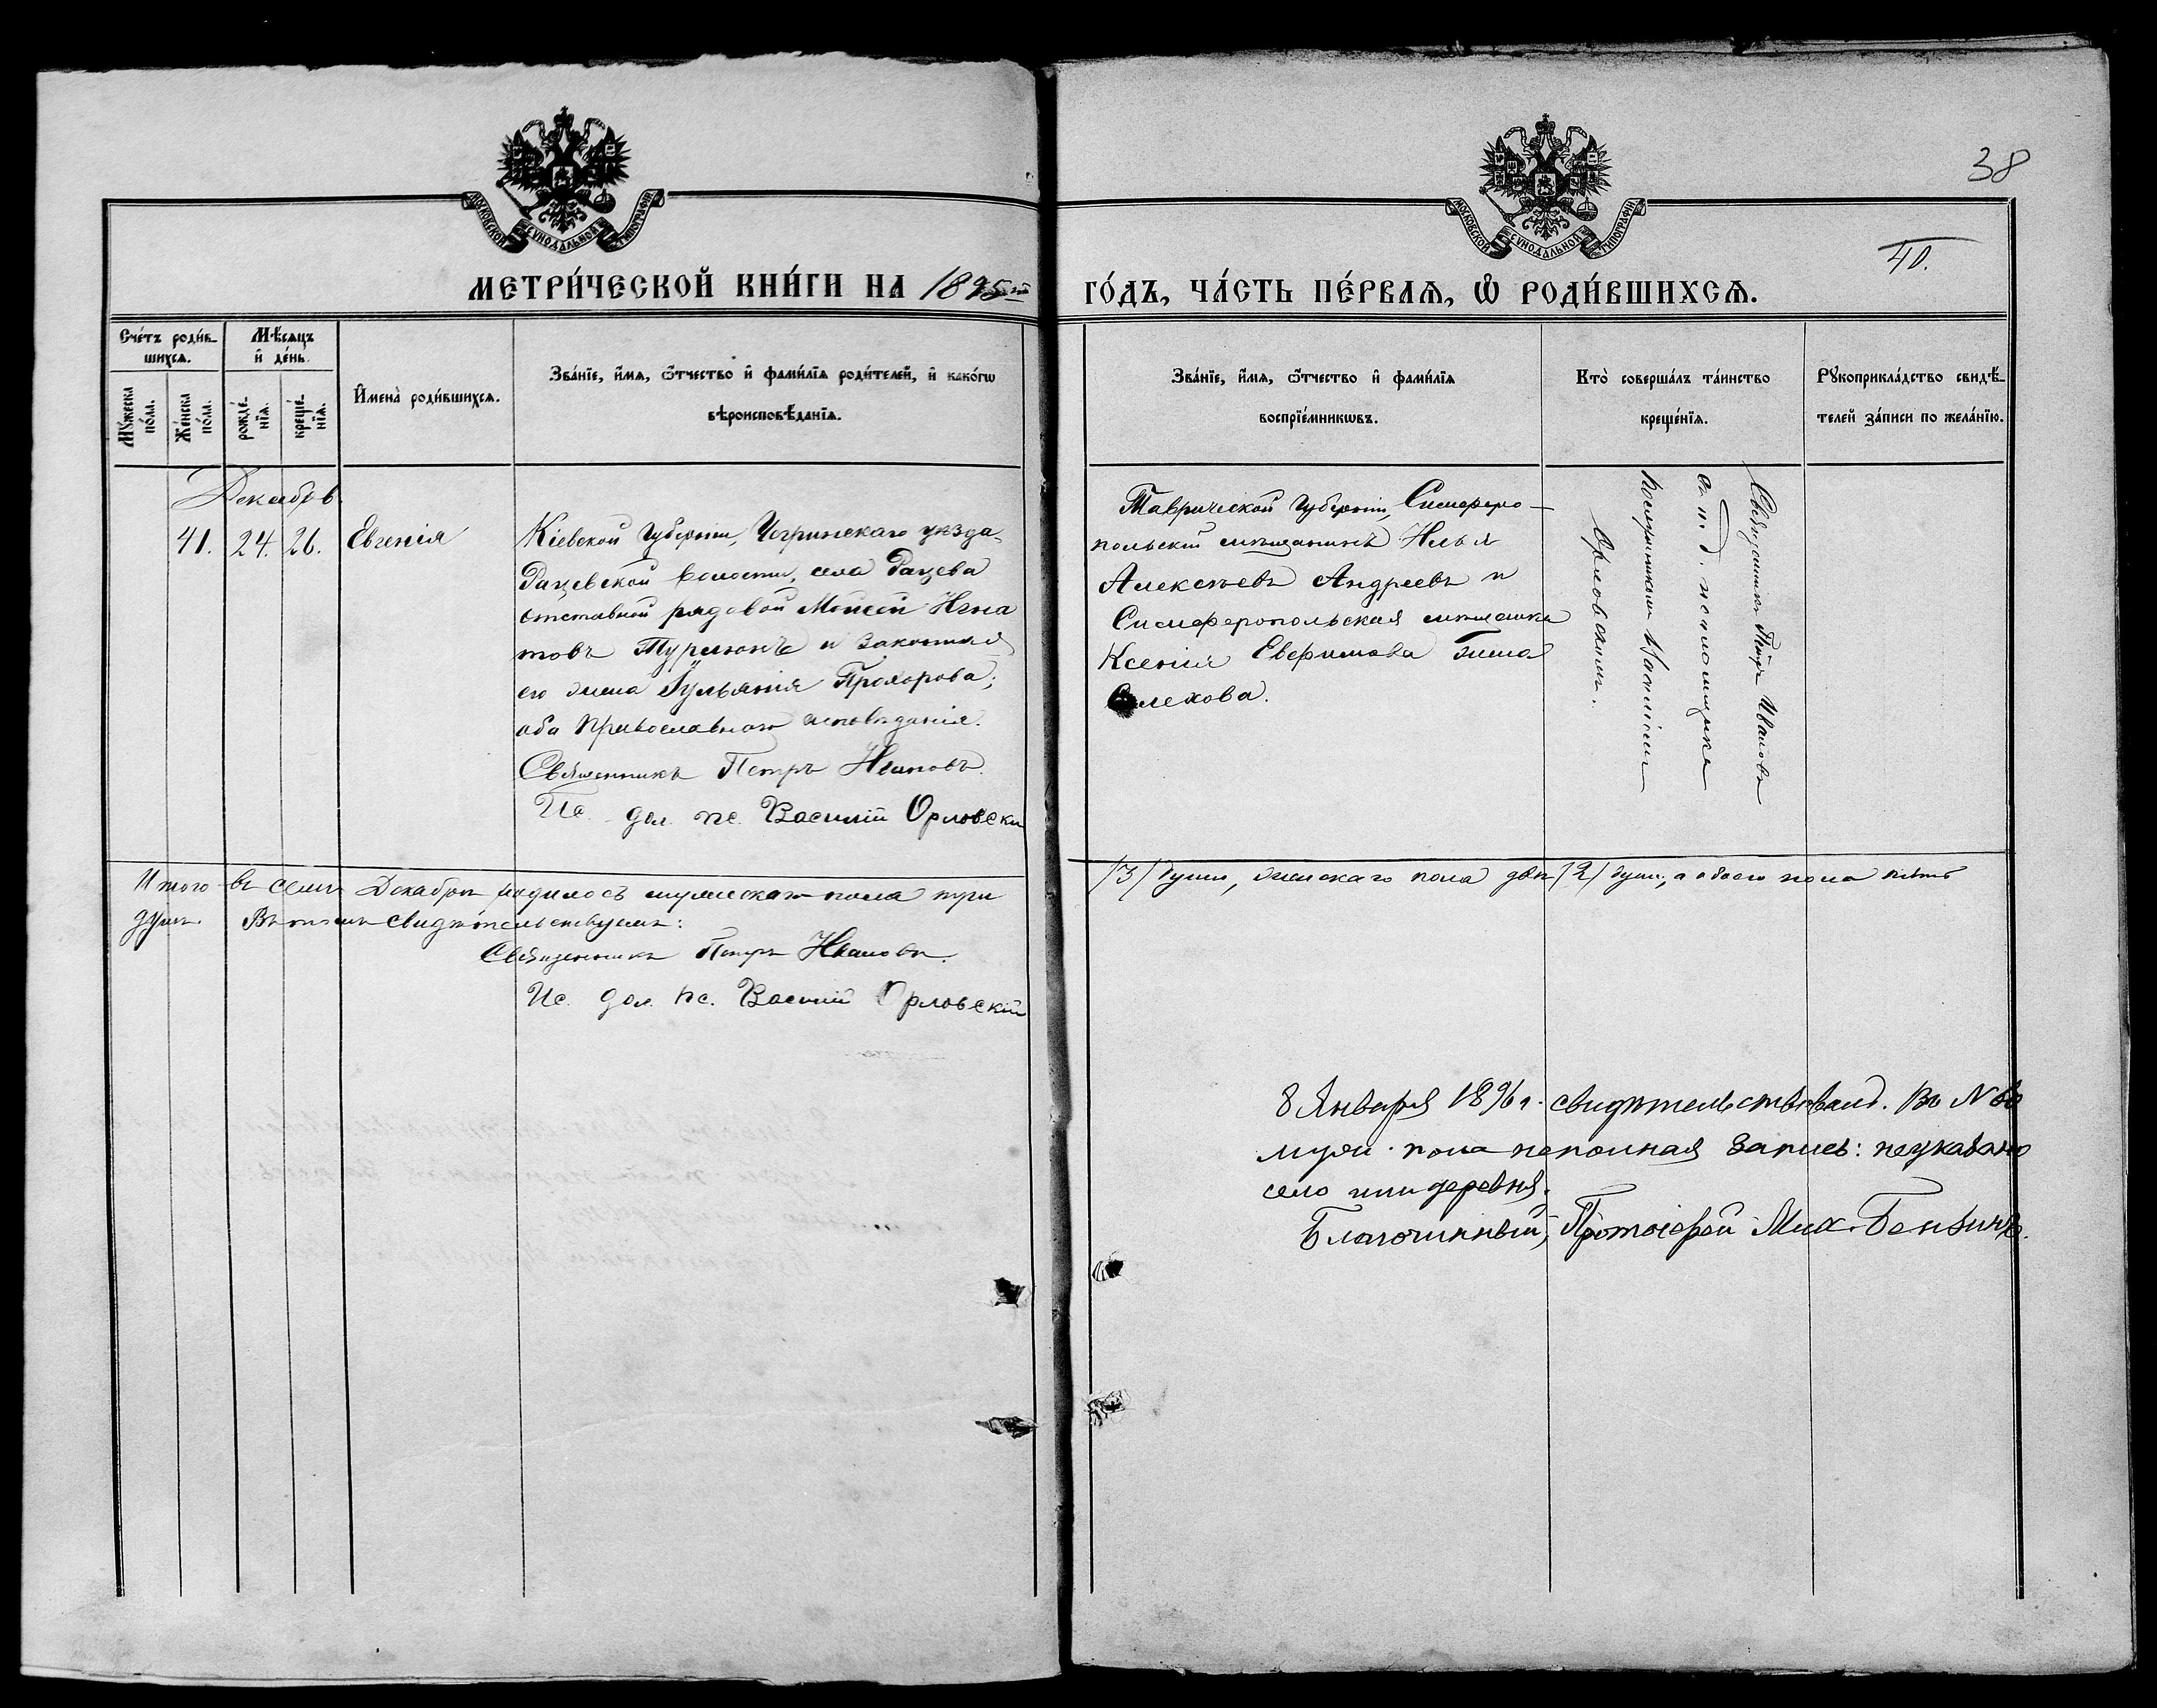 38
40.
МОСКОВСКОЙ СѴНОДАЛЬНОЙ ТИПОГРАФІИ
МОСКОВСКОЙ СѴНОДАЛЬНОЙ ТИПОГРАФІИ
МЕТРИ́ЧЕСКОЙ КНИ́ГИ НА 1895ый
ГО́ДЪ, ЧА́СТЬ ПЕ́РВАѦ, Ѡ РОДИ́ВШИХСѦ.
Сче́тъ роди́в-
шихсѧ.
Мꙋ́жеска по́ла.
Же́нска по́ла.
Мѣ́сѧцъ
и҆ де́нь.
рожде́-
нїѧ.
креще́-
нїѧ.
И҆мена̀ роди́вшихсѧ.
Зва́нїе, и҆́мѧ, ѻ҆́тчество и҆ фами́лїѧ роди́телей, и҆ како́гѡ
вѣроисповѣ́данїѧ.
Зва́нїе, и҆́мѧ, ѻ҆́тчество и҆ фами́лїѧ
воспрїе́мникѡвъ.
Кто̀ соверша́лъ та́инство
креще́нїѧ.
Рꙋкоприкла́дство свидѣ́-
телей за́писи по жела́нїю.
Декабрь
41. 24. 26. Евгенія
Кіевской губерніи, Чигринскаго уѣзда,
Рацевской волости, села Рацева
отставной рядовой Мойсей Игна
товъ Турлюнъ и законная
его жена Іульянія Прохорова;
оба православнаго исповѣданія.
Священникъ Петръ Ивановъ.
Ис. дол. пс. Василій Орловскій
Таврической губерніи, Симферо-
польскій мѣщанинъ Илья
Алексѣевъ Андреевъ и
Симферопольская мѣщанка
Ксенія Евфимова
Священникъ Петръ Ивановъ
съ и. д. псаломщика
Василіемъ
Орловскимъ.
Итого въ семъ Декабрѣ родилось мужескаго пола три
/3/ души, женскаго пола двѣ /2/ души, а обоего пола пять
душъ. Въ чемъ свидѣтельствуемъ:
Священникъ Петръ Ивановъ.
Ис. дол. пс. Василій Орловскій
8 Января 1896 г. свидѣтельствовалъ. Въ №
муж. пола неполная запись: неуказано
село или деревня.
Благочинный, Протоіерей Мих.